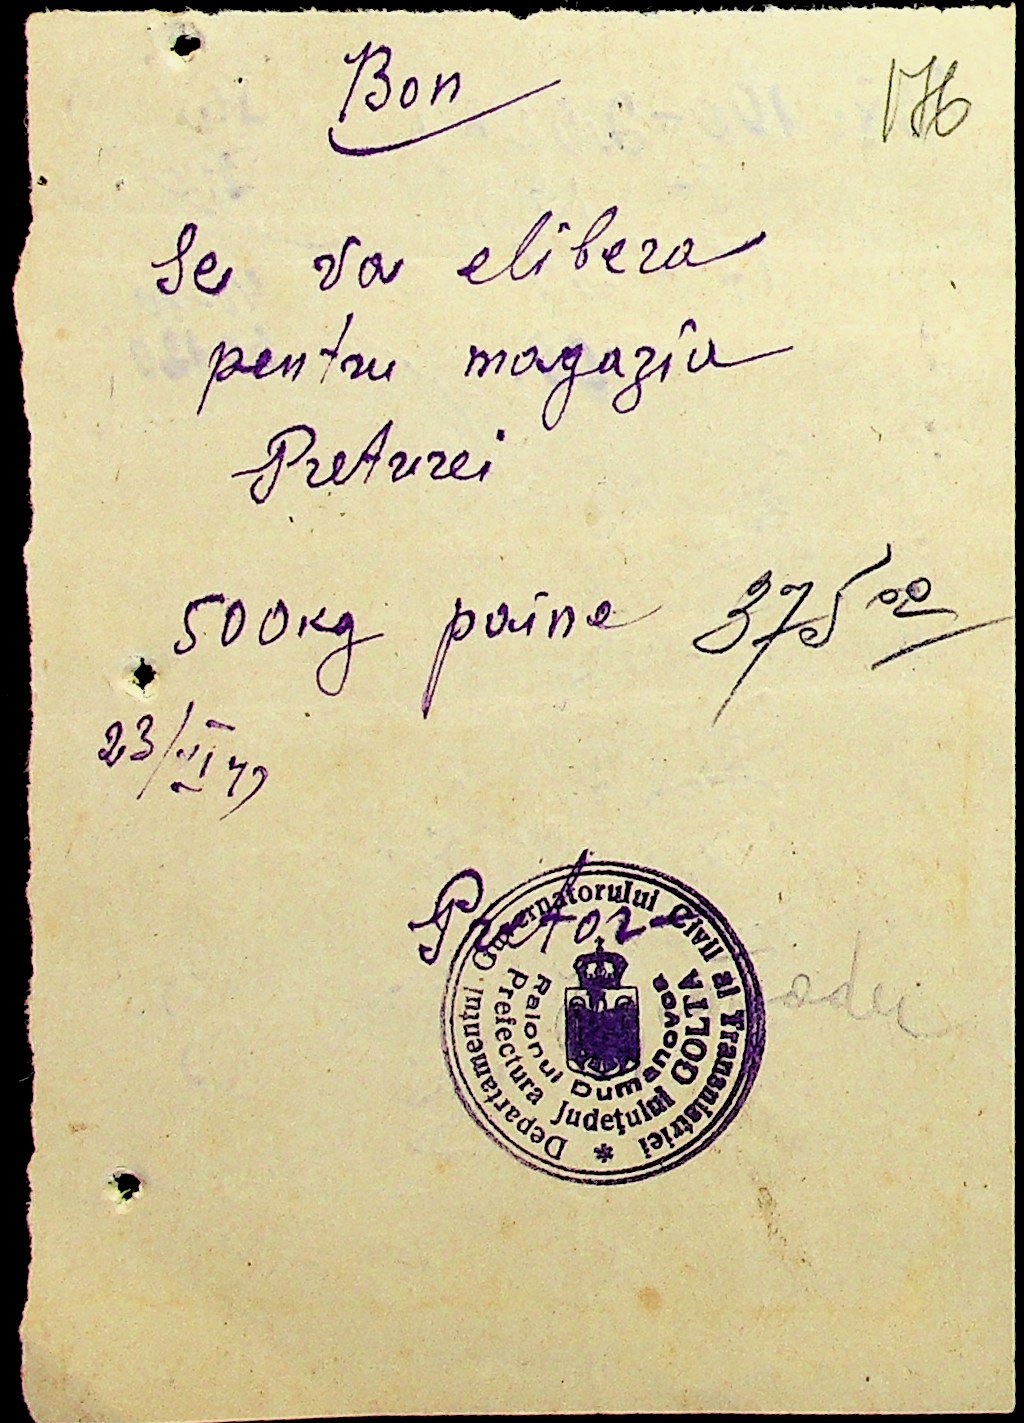 176
Bon
Se va elibera
pentru magazia
Preturei
500kg paine 375 00
23/VI 43
Pretor
Departamentul Guvernatorului Civil al Transnistriei
Prefectura Județului GOLTA
Raionul Dumanovca